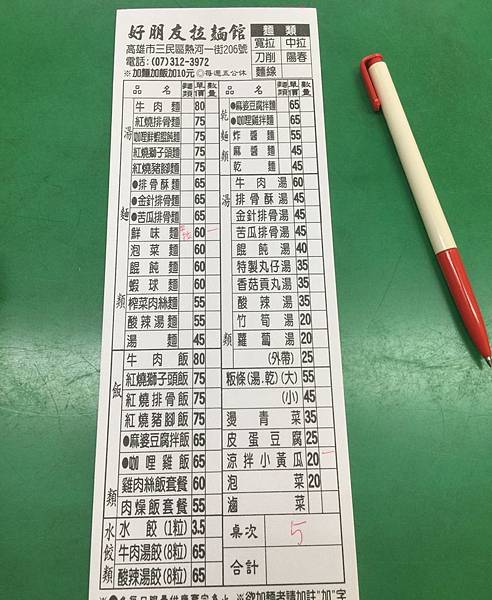 好朋友拉麵館
高雄市三民區熱河一街206號
電話:(07)312-3972
※加麵加飯加10元◎每週五公休
麵類
寬拉 中拉
刀削 陽春
麵線
品名 單價 數量
湯麵類
牛肉麵 80
紅燒排骨麵 75
咖哩鮮蝦餛飩麵 75
紅燒獅子頭麵 75
紅燒豬腳麵 75
●排骨酥麵 65
●金針排骨麵 65
●苦瓜排骨麵 65
鮮味麵 60 一
泡菜麵 60
餛飩麵 60
蝦球麵 60
榨菜肉絲麵 55
酸辣湯麵 55
湯麵 45
飯類
牛肉飯 80
紅燒獅子頭飯 75
紅燒排骨飯 75
紅燒豬腳飯 75
●麻婆豆腐拌飯 65
●咖哩雞飯 65
雞肉絲飯套餐 60
肉燥飯套餐 55
水餃類
水餃(1粒) 3.5
牛肉湯餃(8粒) 65
酸辣湯餃(8粒) 65
品名 單價 數量
乾麵類
●麻婆豆腐拌麵 65
●咖哩雞拌麵 65
炸醬麵 55
麻醬麵 45
乾麵 45
湯類
牛肉湯 60
排骨酥湯 45
金針排骨湯 45
苦瓜排骨湯 45
餛飩湯 40
特製丸仔湯 35
香菇貢丸湯 35
酸辣湯 35
竹筍湯 20
蘿蔔湯 20
(外帶) 25
粄條(湯.乾)(大) 55
(小) 45
燙青菜 35
皮蛋豆腐 25
涼拌小黃瓜 20 一
泡菜 20
滷菜
桌次 5
合計
※欲加麵者請加註"加"字